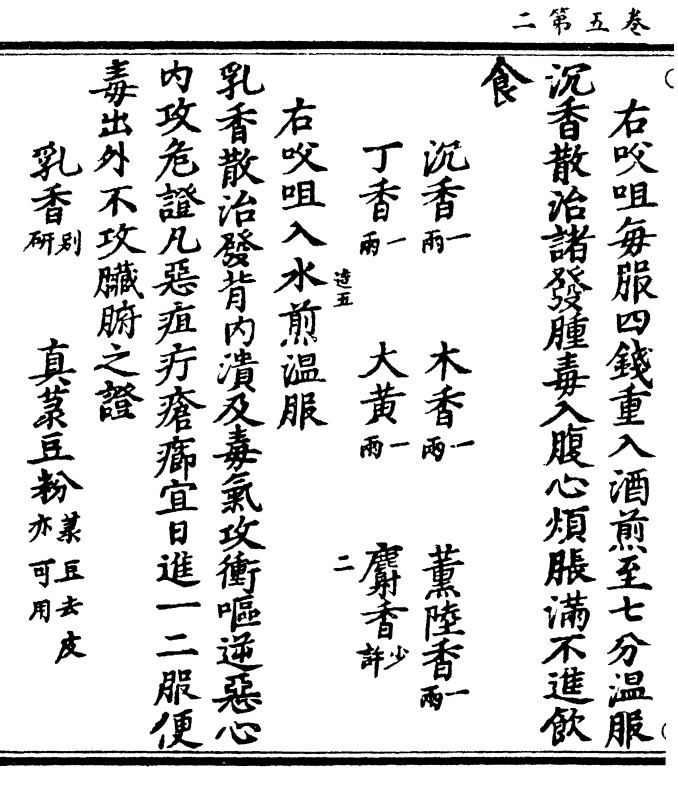 卷五第二
右㕮咀每服四錢重入酒煎至七分温服
沉香散治諸發腫毒入腹心煩脹滿不進飲
食
沉香一兩 木香一兩 薰陸香一兩
丁香一兩 大黃一兩 麝香少許 二
右㕮咀入水煎温服 造五
乳香散治發背内潰及毒氣攻衝嘔逆惡心
内攻危證凡惡疽疔瘡癤宜日進一二服便
毒出外不攻臟腑之證
乳香别研 真菉豆粉菉豆去皮亦可用